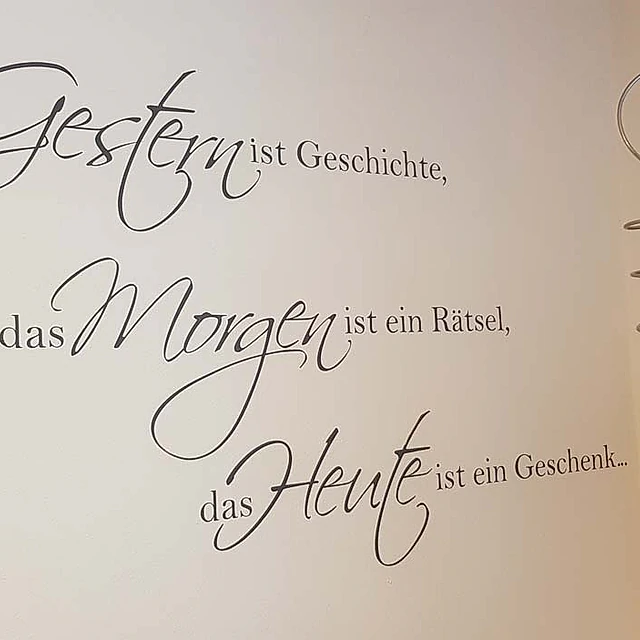 Gestern ist Geschichte,
das Morgen ist ein Rätsel,
das Heute ist ein Geschenk...